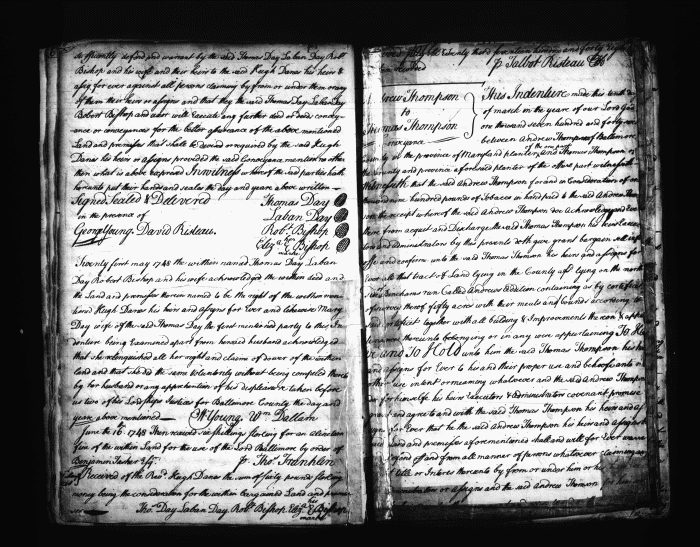 sufficiently defend and warrant by the said Thomas Day Laban Day Robt
Bishop and his wife and their heirs to the said Hugh Deans his heirs &
assigns for ever against all persons claiming by from or under them or any
of them their heirs or assigns and that they the said Thomas Day Laban Day
Robert Bishop and will Execute any further deed or deeds convey-
ance or conveyances for the better assurance of the above mentioned
Land and premises that shall be devised or required by the said Hugh
Deans his heirs or assigns provided the said Conveyance mention no other
than what is above expressed In witness whereof the said parties hath
hereunto put their hands and seals the day and year above written
Signed Sealed & Delivered Thomas Day
in the presence of Laban Day
George Young. David Risteau. Robt. Bishop
Eliza. Bishop
marke
Twenty first may 1748 the within named Thomas Day Laban
Day Robert Bishop and his wife acknowledged the within deed and
the Land and premises therein named to be the right of the within men-
tioned Hugh Deans his heirs and assigns for Ever and likewise Mary
Day wife of the said Thomas Day the first mentioned party to this In-
denture being Examined apart from her said husband acknowledged
that she relinquished all her right and claims of dower of the within
land and that she did the same voluntarily without being compelled thereto
by her husband or any apprehention of his displeasure taken before
us two of his Lordships Justices for Baltimore County the day and
year above mentioned W Young. Wm Dallam
June the 16. 1748 Then received six shillings sterling for an alienation
fine of the within Land for the use of the Lord Baltimore by order of
Benjamin Tasker Esq. p. Tho. Franklin
Received of the Revd. Hugh Deans the sum of forty pounds sterling
money being the consideration for the within bargained Land and premises
Tho. Day Laban Day. Robt Bishop. Eliz. Bishop
marke
p Talbot Risteau Clk
Andrew Thompson
to
Thomas Thompson
conveyance
This Indenture made this tenth day
of march in the year of our Lord God
one thousand seven hundred and forty
between Andrew Thompson of Baltimore
County in the province of Maryland planter and Thomas Thompson of
the County and province aforesaid planter of the other part witnesseth
that the said Andrew Thompson for and in Consideration of one
thousand nine hundred pounds of Tobacco in hand paid to the said Andrew Thom
receipt whereof the said Andrew Thompson doe Acknowledge and
thereof acquit and Discharge the said Thomas Thompson his heirs
and administrators by this presents doth give grant bargain sell
and confirm unto the said Thomas Thomson his heirs and assigns for
all that tract of Land lying in the County afsd lying on the north
run Called Andrews Addition containing as by certificate
of survey thereof fifty acres with their meets and bounds according to
together with all building & Improvements thereon &
thereunto belonging or in any wise appertaining To Have
and To Hold unto him the said Thomas Thompson his heirs
and assigns for Ever to his and their proper use and behoof and to no
other use intent or meaning whatsoever and the said Andrew Thompson
for himselfe his heirs Executors & administrators covenant promise
grant and agree to and with the said Thomas Thompson his heirs and
for Ever that he the said Andrew Thompson his heirs and assigns
Land and premises aforementioned shall and will for Ever
defend of and from all manner of persons whatsoever claiming
title or Interest thereunto by from or under him or his
or assigns and the said Andrew Thomson for